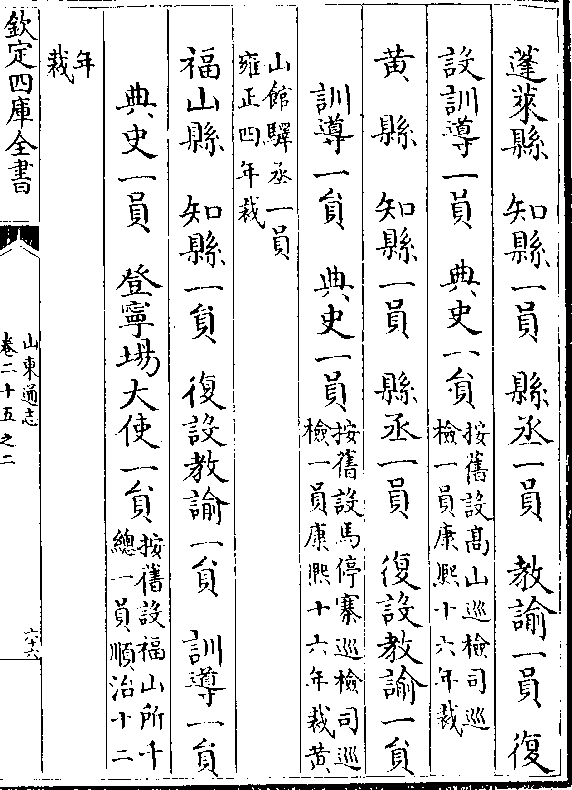 蓬萊縣　知縣一員　縣丞一員　教諭一員　復
設訓導一員　典史一員按舊設髙山巡檢司巡
檢一員康熈十六年裁
黄縣　知縣一員　縣丞一員　復設教諭一員
訓導一員　典史一員按舊設馬停寨巡檢司巡
檢一員康熈十六年裁黄
山館驛丞一員
雍正四年裁
福山縣　知縣一員　復設教諭一員　訓導一員
典史一員　登寧場大使一員按舊設福山所千
總一員順治十二
年
裁
欽定四庫全書
山東通志
卷二十五之二
六十六